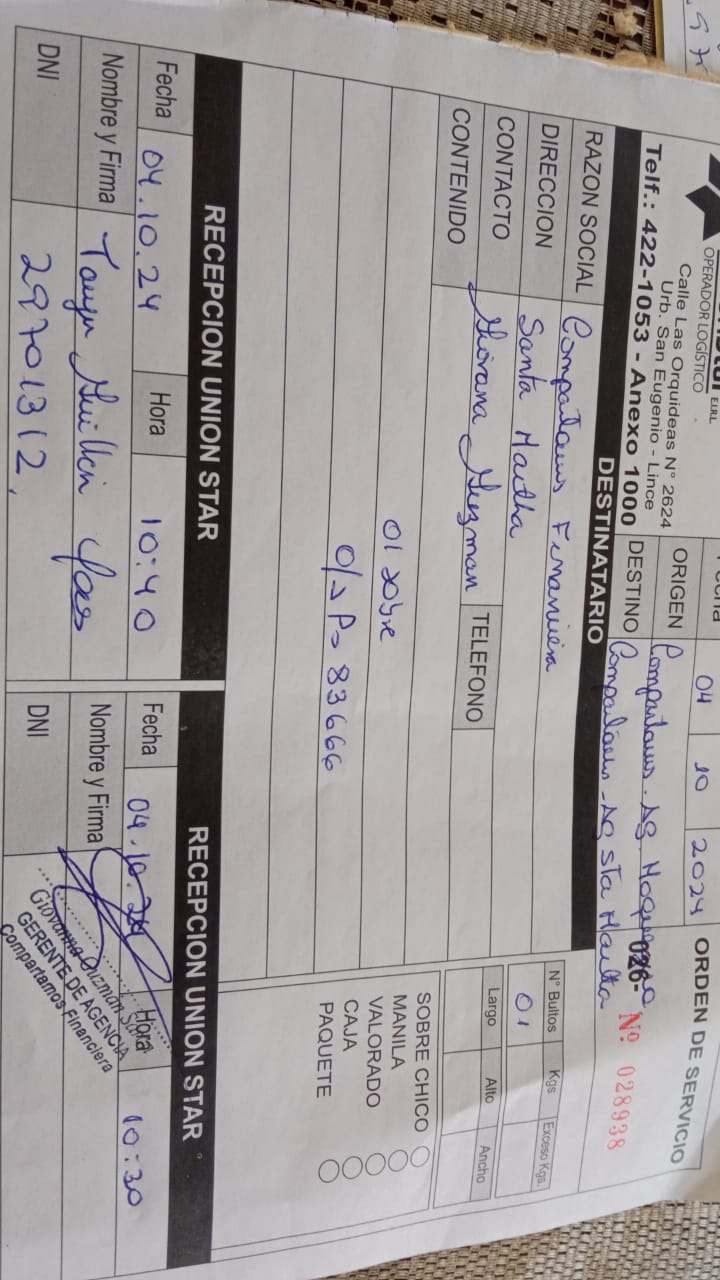 E.I.R.L
OPERADOR LOGÍSTICO
Calle Las Orquideas N° 2624
Urb. San Eugenio - Lince
Telf.: 422-1053 - Anexo 1000
Fecha 04 10 2024
ORDEN DE SERVICIO
ORIGEN Compartamos - Ag.
DESTINO Compartamos - Ag Sta Martha
026- Nº 028938
DESTINATARIO
RAZON SOCIAL Compartamos Financiera
DIRECCION Santa Martha
CONTACTO Giovana Guzman TELEFONO
CONTENIDO
01 sobre
O/S P> 83666
N° Bultos Kgs Exceso Kgs.
01
Largo Alto Ancho
SOBRE CHICO
MANILA
VALORADO
CAJA
PAQUETE
RECEPCION UNION STAR
Fecha 04.10.24 Hora 10:40
Nombre y Firma
DNI 29701312
RECEPCION UNION STAR
Fecha 04.10.24 Hora 10:30
Nombre y Firma
DNI
Giovanna Guzmán
GERENTE DE AGENCIA
Compartamos Financiera